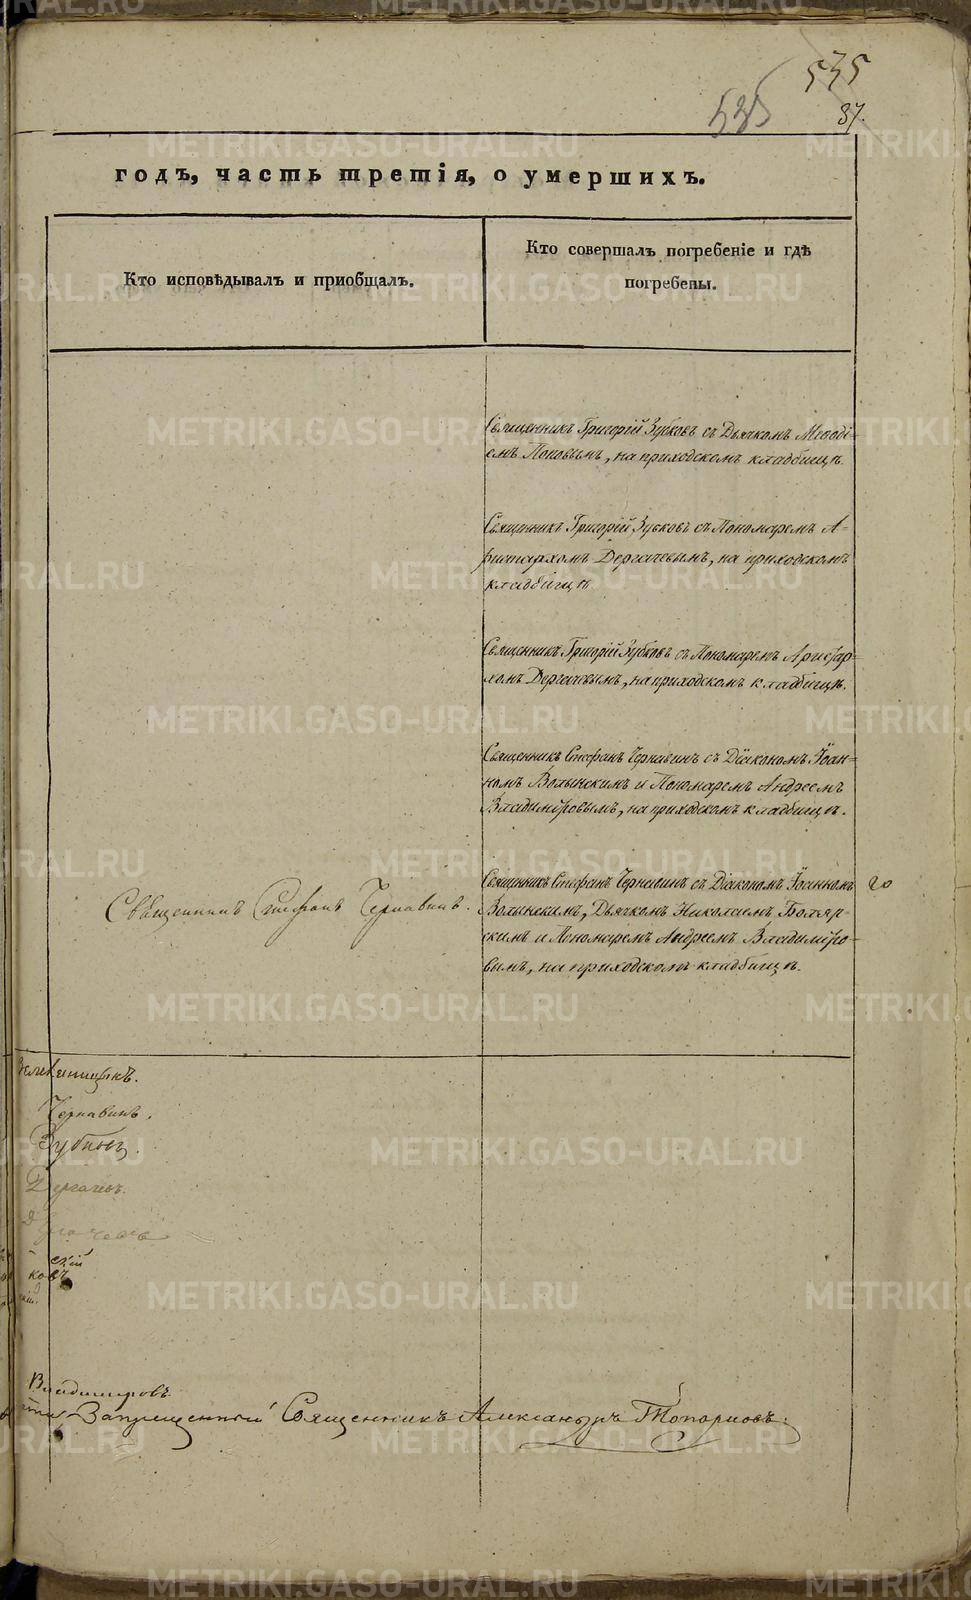 535
535
87.
годъ, часть третія, о умершихъ.
Кто исповѣдывалъ и пріобщалъ.
Кто совершалъ погребеніе и гдѣ
погребены.
Священникъ Григорій Зубковъ съ Дьячкомъ Меѳоді-
емъ Поповымъ, на приходскомъ кладбищѣ.
Священникъ Григорій Зубковъ съ Пономаремъ А-
ристархомъ Дергачевымъ, на приходскомъ
кладбищѣ.
Священникъ Григорій Зубковъ съ Пономаремъ Аристар-
хомъ Дергачевымъ, на приходскомъ кладбищѣ.
Священникъ Стефанъ Чернавинъ съ Діакономъ Іоан-
номъ Волынскимъ и Пономаремъ Андреемъ
Владиміровымъ, на приходскомъ кладбищѣ.
Священникъ Стефанъ Чернавинъ.
Священникъ Стефанъ Чернавинъ съ Діакономъ Іоанномъ
Волынскимъ, Дьячкомъ Николаемъ Бояр-
скимъ и Пономаремъ Андреемъ Владиміро-
вымъ, на приходскомъ кладбищѣ.
Чернавинъ.
Зубковъ.
Дергачевъ.
скій
ковъ
Владиміровъ
Запрещенный Священникъ Александръ Топорковъ.
METRIKI.GASO-URAL.RU